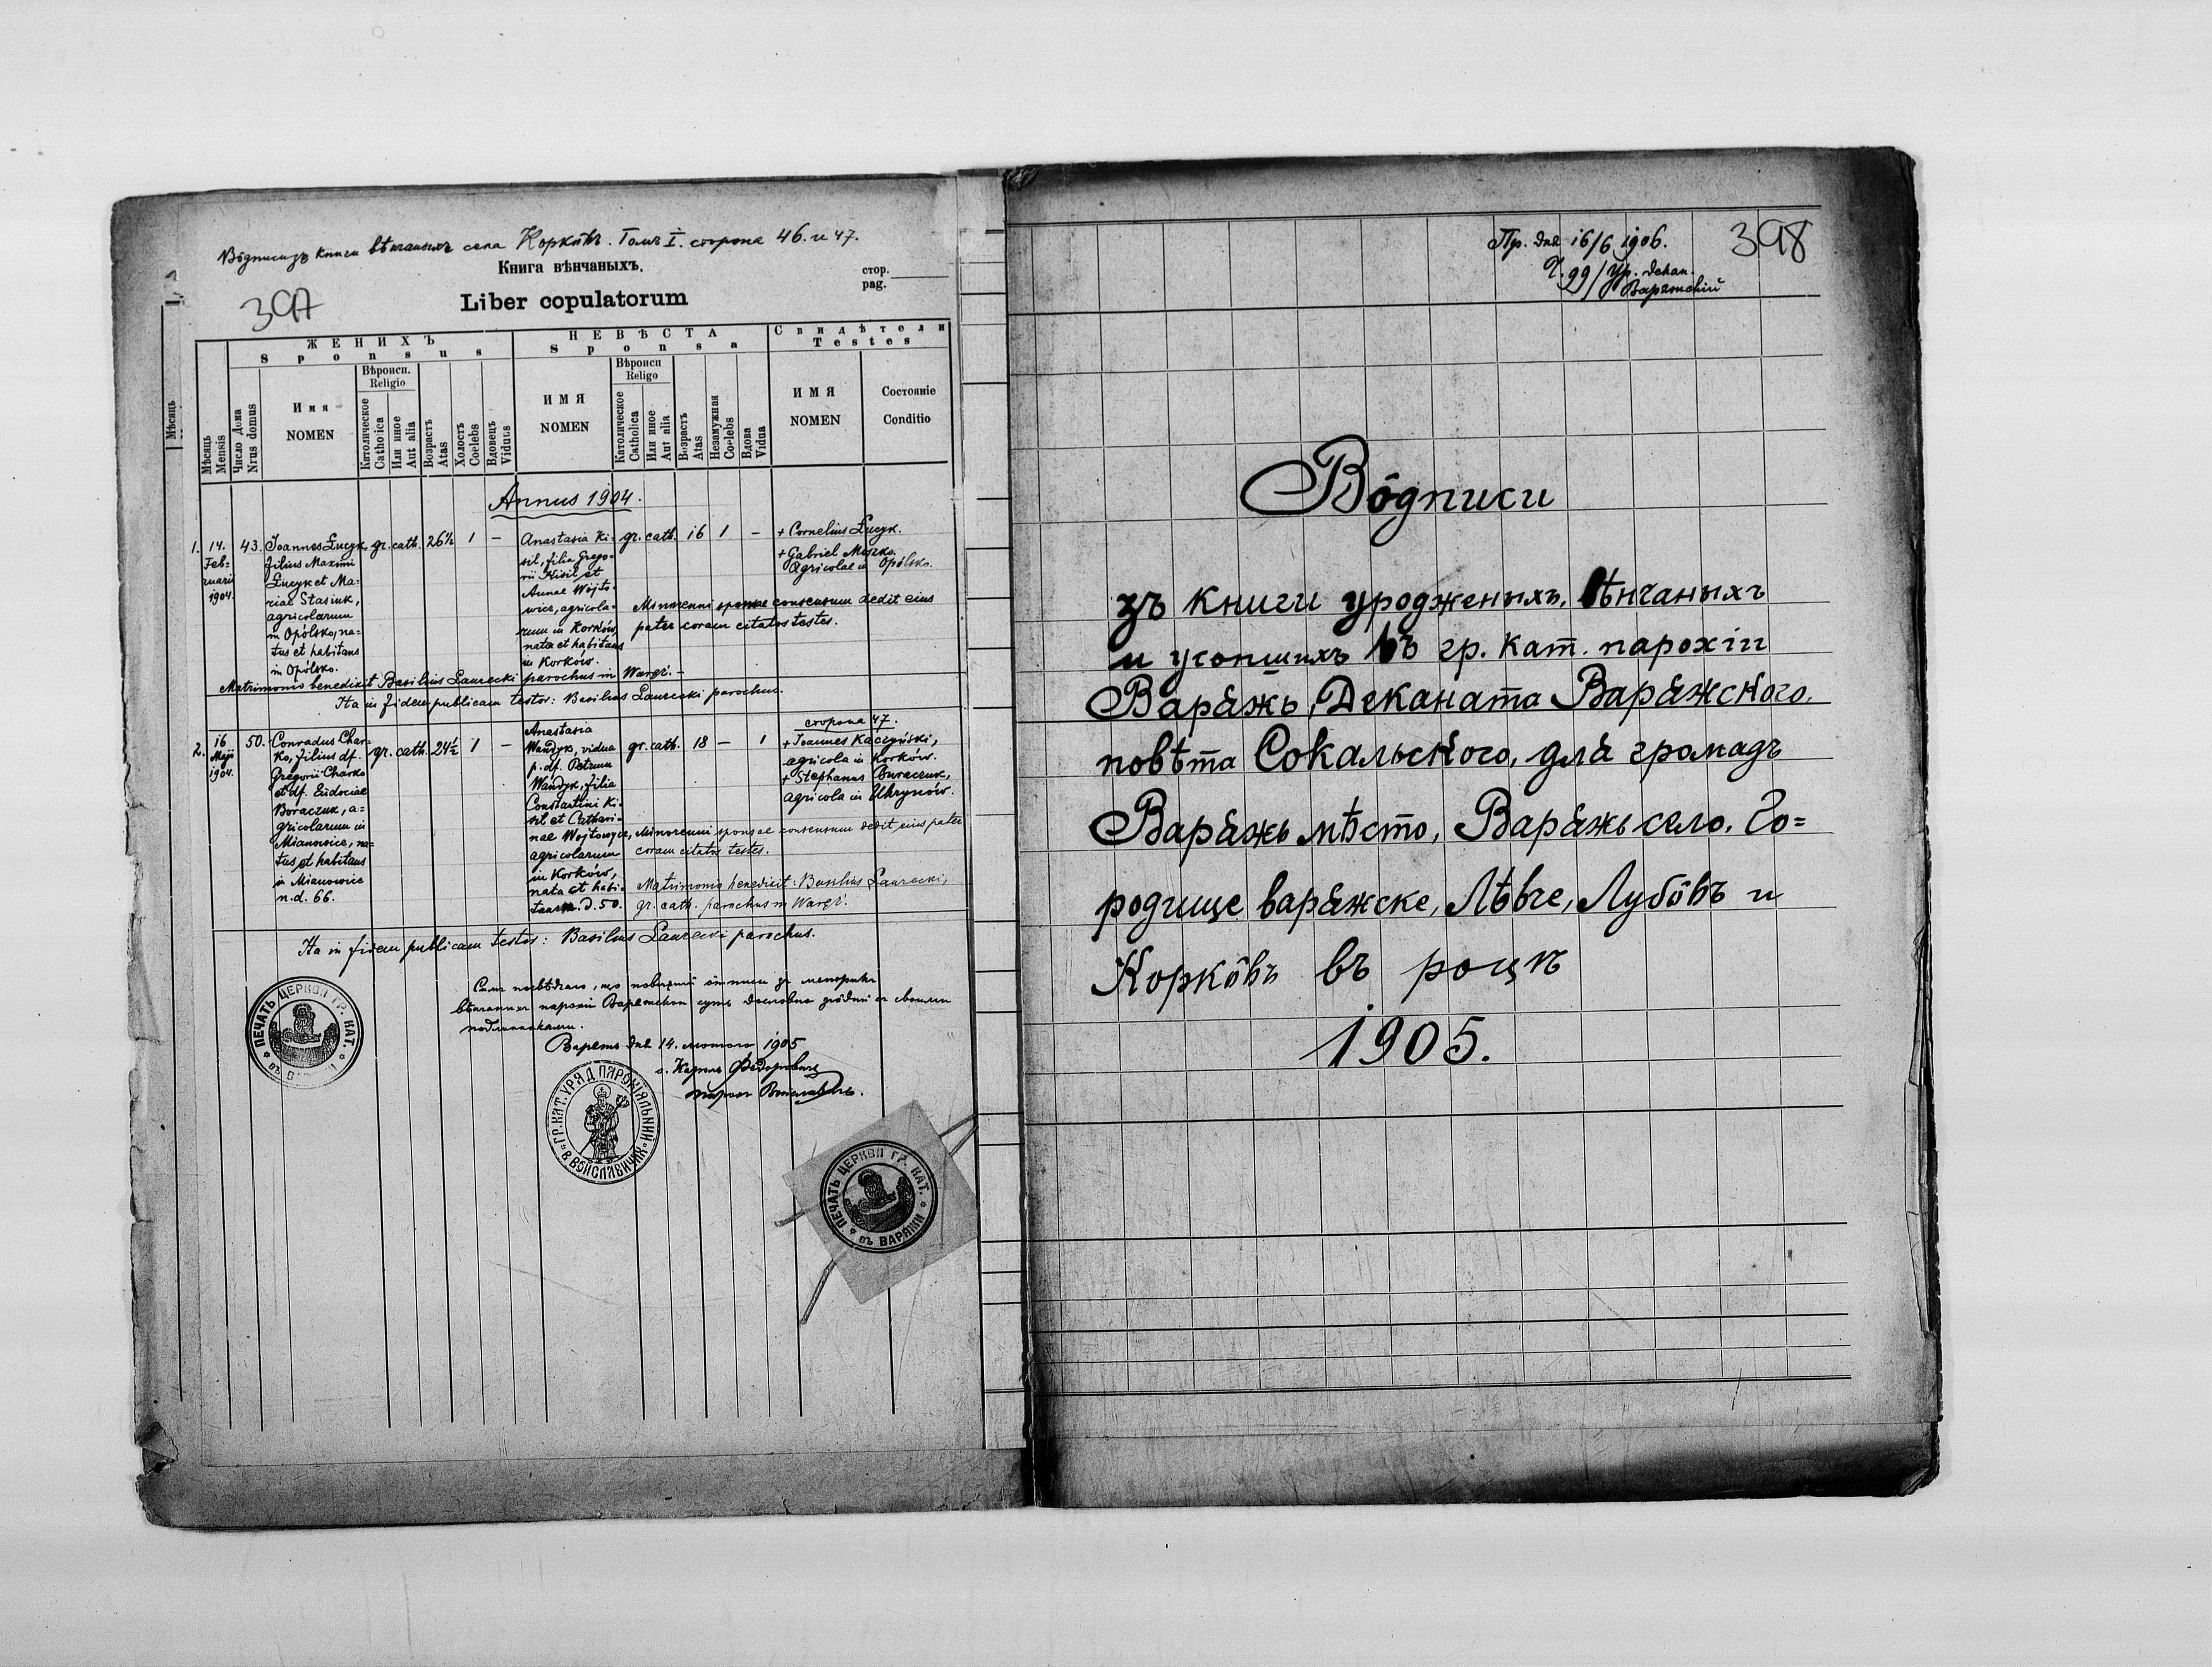 Вôдписи зъ книги вѣнчаныхъ села Коркôвъ. Томъ I. сторона 46. и 47.
Книга вѣнчаныхъ.
стор.
pag.
397
Liber copulatorum
Мѣсяць
Мѣсяць
Mensis
Число Дома
Nrus domus
ЖЕНИХЪ
Sponsus
Имя
NOMEN
Вѣроисп.
Religio
Католическое
Catholica
Или иное
Aut alia
Возрастъ
Atas
Холостъ
Coelebs
Вдовецъ
Viduus
НЕВѢСТА
Sponsa
ИМЯ
NOMEN
Вѣроисп
Religo
Католическое
Catholica
Или иное
Aut alia
Возрастъ
Atas
Незамужная
Coelebs
Вдова
Vidua
Свидѣтели
Testes
ИМЯ
NOMEN
Состояніе
Conditio
Annus 1904.
1.
14.
Feb=
ruarii
1904.
43.
Joannes Łucyk,
filius Maximi
Łucyk et Ma-
riae Stasiuk,
agricolarum
in Opólsko, na-
tus et habitans
in Opólsko.
gr. cath.
26½
1
–
Anastasia Ki-
sil, filia Grego-
rii Kisil et
Annae Wojto-
wicz, agricola-
rum in Korków,
nata et habitans
in Korków.
gr. cath.
16
1
–
+ Cornelius Łucyk.
+ Gabriel Meszko.
Agricolae in Opólsko.
Minorenni sponsae consensum dedit eius
pater coram citatos testes.
Matrimonio benedixit Basilius Laurecki parochus in Waręż. –
Ita in fidem publicam testor: Basilius Laurecki parochus.
2.
16
Maji
1904.
50.
Conradus Char-
ko, filius df.
Gregorii Charko
et df. Eudociae
Boraczuk, a=
gricolarum in
Mianowice, na-
tus et habitans
in Mianowice
n.d. 66.
gr. cath.
24½
1
–
Anastasia
Wandyk, vidua
p. df. Petrum
Wandyk, filia
Constantini Ki-
sil et Cathari-
nae Wojtowycz,
agricolarum
in Korków,
nata et habi-
tans n. d. 50.
gr. cath.
18
–
1
сторона 47.
+ Joannes Kaczyński,
agricola in Korków.
+ Stephanus Buraczuk,
agricola in Uhrynów.
Minorenni sponsae consensum dedit eius pater
coram citatos testes.
Matrimonio benedixit: Basilius Laurecki,
gr. cath. parochus in Waręż.
Ita in fidem publicam testor: Basilius Laurecki parochus.
ПЕЧАТЬ ЦЕРКВИ ГР. КАТ.
подлинниками.
Варяжъ дня 14. лютого 1905
о. Кирилъ Федоровичъ
ГР. КАТ. УРЯД ПАРОХІЯЛЬНИЙ
В ВОЙСЛАВИЧАХ
ПЕЧАТЬ ЦЕРКВИ ГР. КАТ.
въ ВАРЯЖИ
Пр. дня 16/6 1906.
Ч. 99/Ур. декан.
Варяжскій
398
Вôдписи
зъ книги уродженыхъ, вѣнчаныхъ
и усопшихъ въ гр. кат. парохіи
Варяжъ, Деканата Варяжского,
повѣта Сокальского, для громадъ
Варяжъ мѣсто, Варяжъ село, Го=
родище варяжске, Лѣвче, Лубôвъ и
Коркôвъ въ роцѣ
1905.